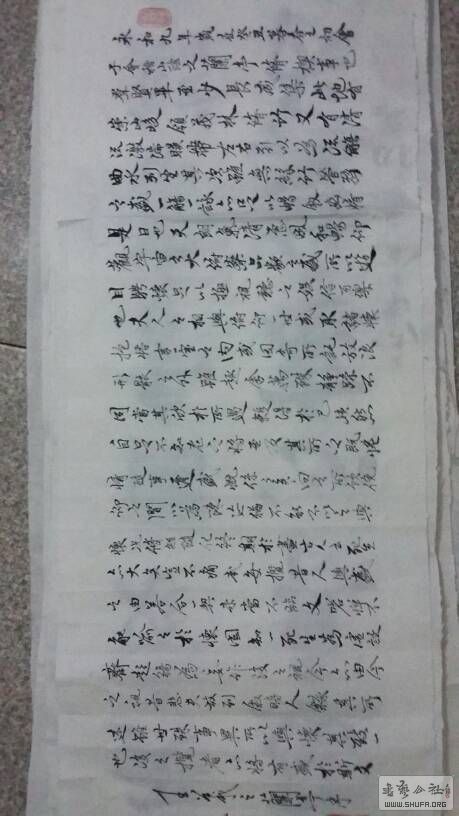 永和九年歲在癸丑暮春之初會
于會稽山陰之蘭亭脩禊事也
羣賢畢至少長咸集此地有
崇山峻領茂林脩竹又有清
流激湍暎帶左右引以為流觴
曲水列坐其次雖無絲竹管弦
之盛一觴一詠亦足以暢敘幽情
是日也天朗氣清惠風和暢仰
觀宇宙之大俯察品類之盛所以遊
目騁懷足以極視聽之娛信可樂
也夫人之相與俯仰一世或取諸懷
抱悟言一室之內或因寄所託放浪
形骸之外雖趣舍萬殊靜躁不
同當其欣於所遇暫得於己快然
自足不知老之將至及其所之既惓
情隨事遷感慨係之矣向之所欣俛
仰之間以為陳迹猶不能不以之興
懷況脩短隨化終期於盡古人云死生
亦大矣豈不痛哉每攬昔人興感
之由若合一契未嘗不臨文嗟悼不
能喻之於懷固知一死生為虛誕
齊彭殤為妄作後之視今亦由今
之視昔悲夫故列敘時人錄其所
述雖世殊事異所以興懷其致一
也後之攬者亦將有感於斯文
王羲之蘭亭序
书法公社
WWW.SHUFA.ORG